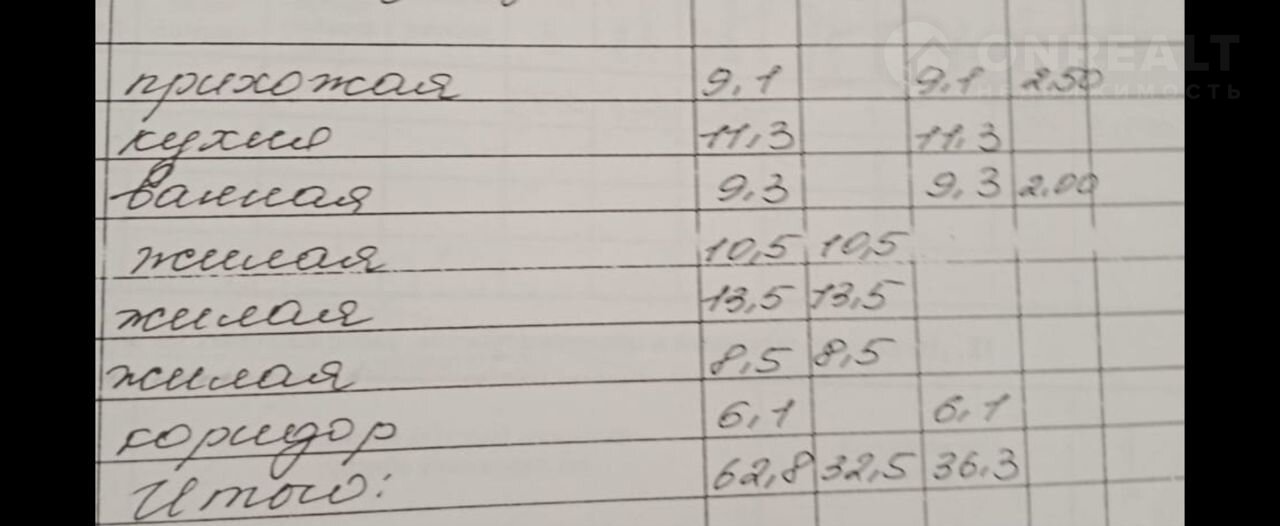 ONREALT
НЕДВИЖИМОСТЬ
прихожая 9,1 9,1 2,50
кухня 11,3 11,3
ванная 9,3 9,3 2.00
жилая 10,5 10,5
жилая 13,5 13,5
жилая 8,5 8,5
коридор 6,1 6,1
Итого: 62,8 32,5 36,3